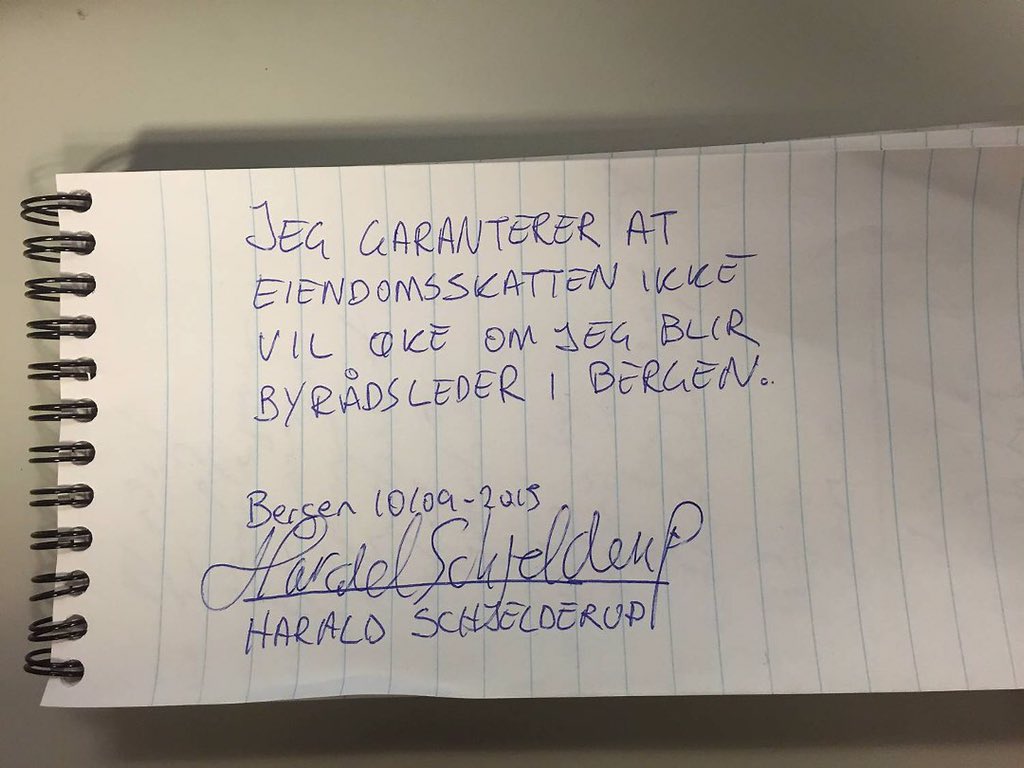 JEG GARANTERER AT
EIENDOMSSKATTEN IKKE
VIL ØKE OM JEG BLIR
BYRÅDSLEDER I BERGEN.
Bergen 10/09-2015
Harald Schjelderup
HARALD SCHJELDERUP